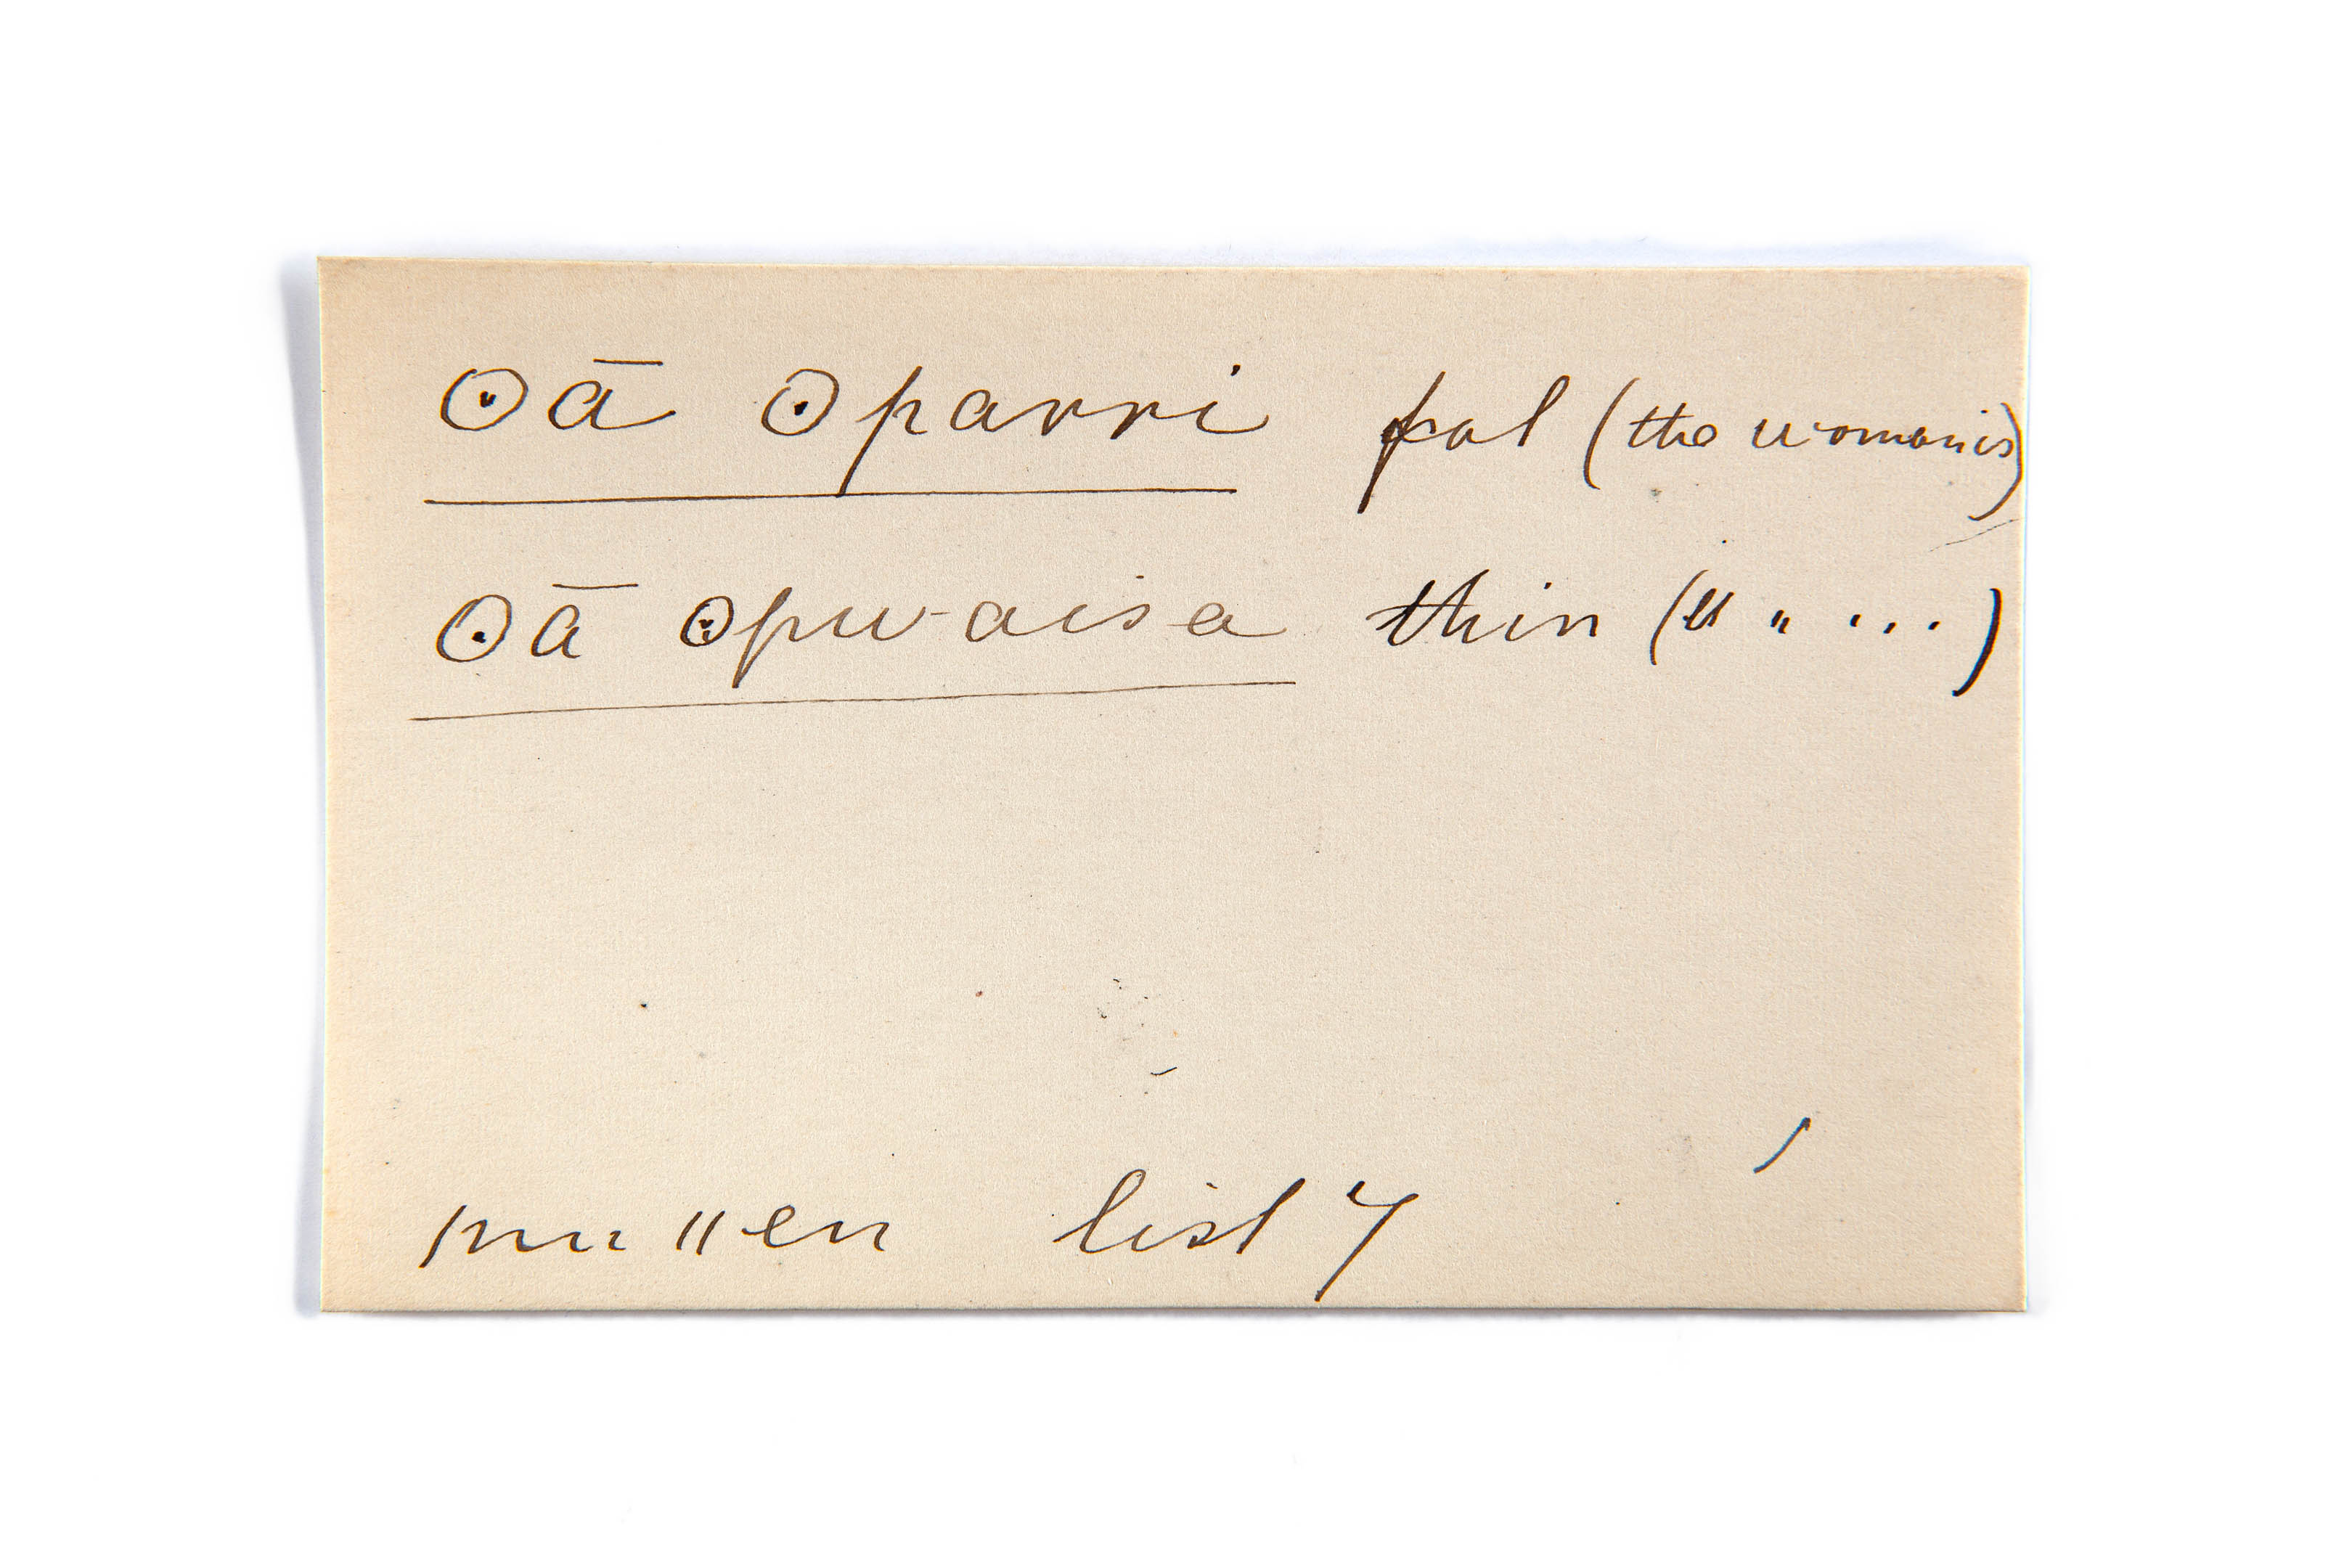 ʘā ʘparri fat (the woman is)
ʘā ʘpwaisa thin (" " ...)
/nu //en list 7